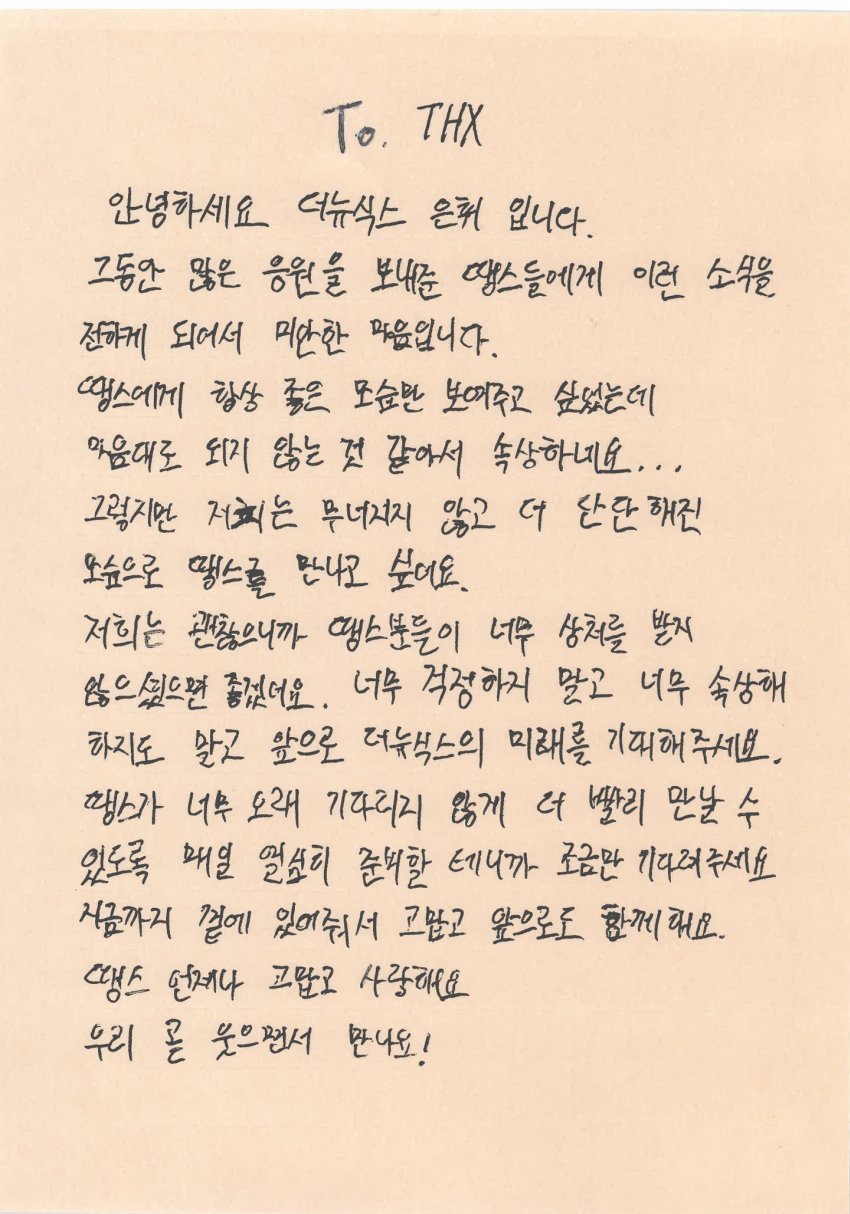 To. THX
안녕하세요 더뉴식스 은휘 입니다.
그동안 많은 응원을 보내준 땡스들에게 이런 소식을
전하게 되어서 미안한 마음입니다.
땡스에게 항상 좋은 모습만 보여주고 싶었는데
마음대로 되지 않는 것 같아서 속상하네요...
그렇지만 저희는 무너지지 않고 더 단단해진
모습으로 땡스를 만나고 싶어요.
저희는 괜찮으니까 땡스분들이 너무 상처를 받지
않으셨으면 좋겠어요. 너무 걱정하지 말고 너무 속상해
하지도 말고 앞으로 더뉴식스의 미래를 기대해주세요.
땡스가 너무 오래 기다리지 않게 더 빨리 만날 수
있도록 매일 열심히 준비할 테니까 조금만 기다려주세요
지금까지 곁에 있어줘서 고맙고 앞으로도 함께해요.
땡스 언제나 고맙고 사랑해요
우리 곧 웃으면서 만나요!